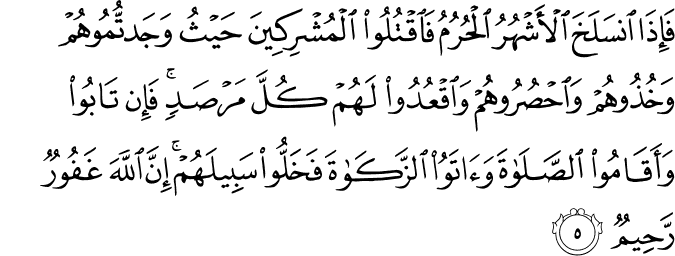 فَإِذَا ٱنسَلَخَ ٱلْأَشْهُرُ ٱلْحُرُمُ فَٱقْتُلُوا۟ ٱلْمُشْرِكِينَ حَيْثُ وَجَدتُّمُوهُمْ
وَخُذُوهُمْ وَٱحْصُرُوهُمْ وَٱقْعُدُوا۟ لَهُمْ كُلَّ مَرْصَدٍ ۚ فَإِن تَابُوا۟
وَأَقَامُوا۟ ٱلصَّلَوٰةَ وَءَاتَوُا۟ ٱلزَّكَوٰةَ فَخَلُّوا۟ سَبِيلَهُمْ ۚ إِنَّ ٱللَّهَ غَفُورٌ
رَّحِيمٌ ٥